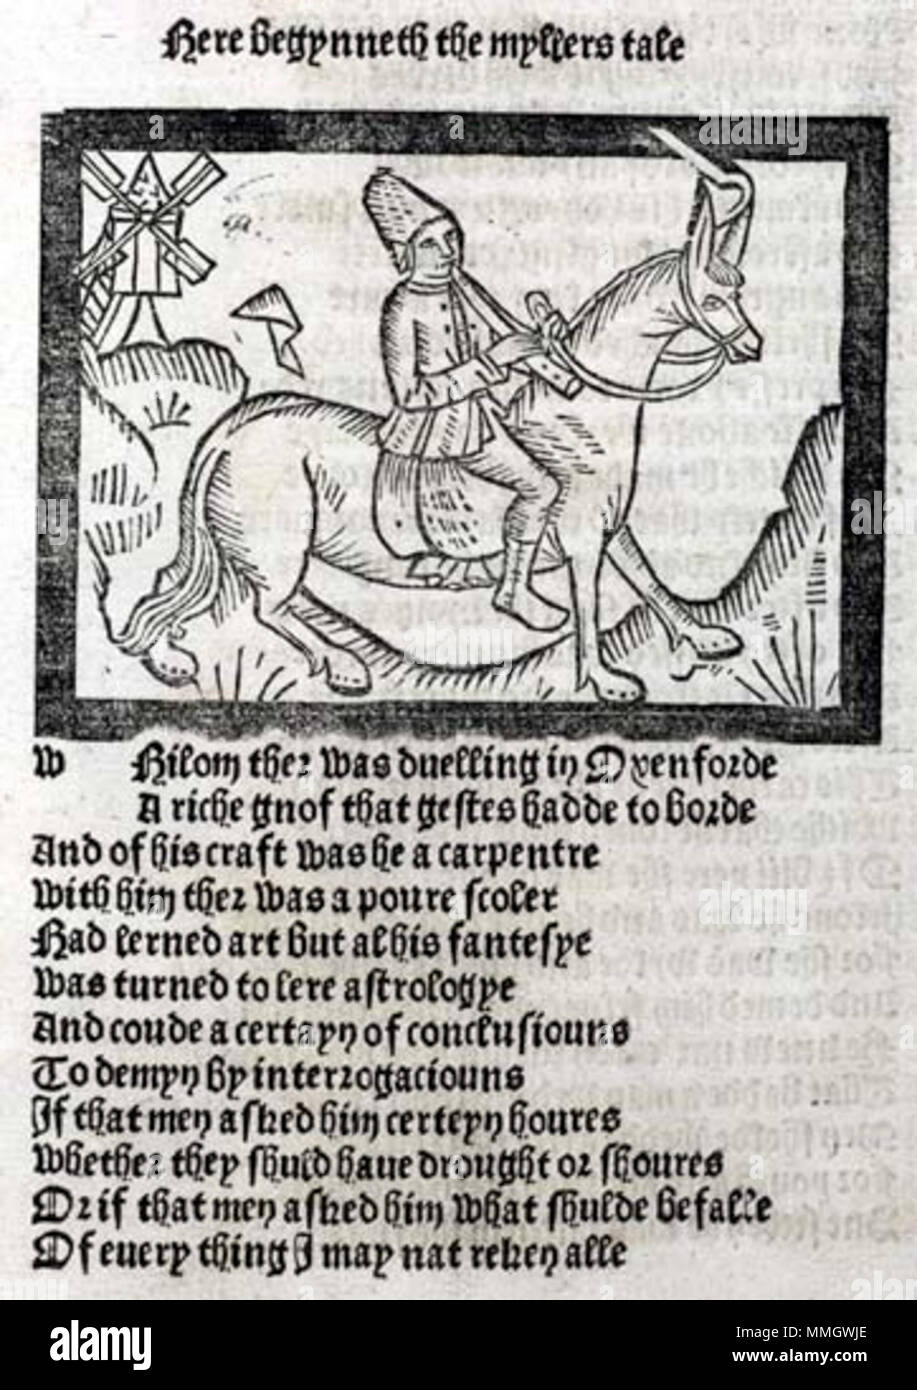 Here begynneth the myllers tale
W Hilom ther was duelling in Oxenforde
A riche gnof that gestes hadde to borde
And of his craft was he a carpentre
With him ther was a poure scoler
Had lerned art but al his fantesye
Was turned to lere astrologye
And coude a certayn of conclusiouns
To demyn by interrogaciouns
If that men asked him certeyn houres
Whether they shuld haue drought or shoures
Or if that men asked him what shulde befalle
Of euery thing I may nat reken alle
alamy
Image ID: MMGWJE
www.alamy.com